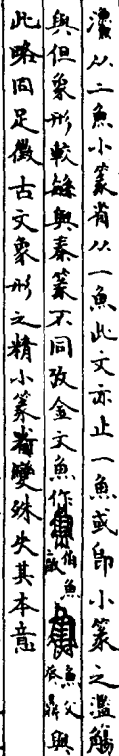 𤀯从二魚小篆省从一魚此文亦止一魚或卽小篆之濫觴
與但象形較緐與秦篆不同攷金文魚作伯魚敦魚父癸鼎與
此略同足徵古文象形之精小篆變殊失其本意